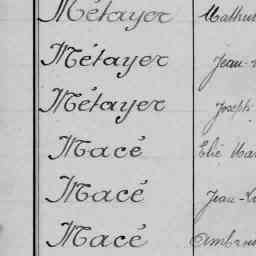 Métayer Mathur
Métayer Jean-
Métayer Joseph
Macé Elie Mar
Macé Jean-
Macé Ambroi